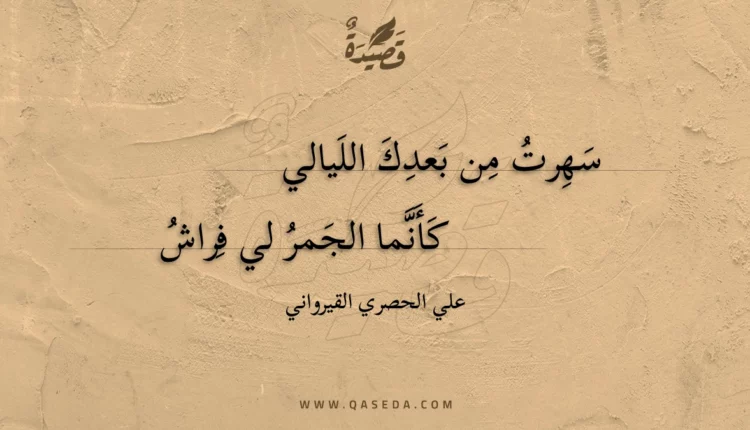 قَصِيدَةٌ
سَهِرتُ مِن بَعدِكَ اللَيالي
كَأَنَّما الجَمرُ لي فِراشُ
علي الحصري القيرواني
WWW.QASEDA.COM